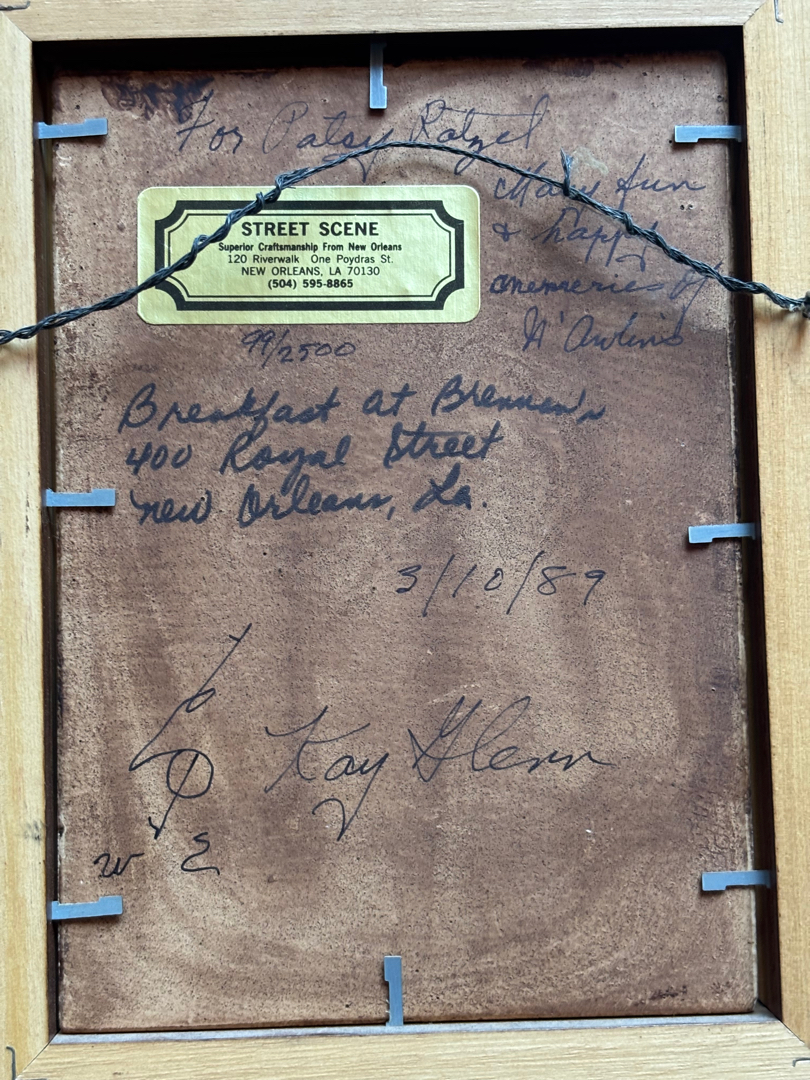 For Patsy Ratzel
Many fun
& happy
memories of
N'Awlins
STREET SCENE
Superior Craftsmanship From New Orleans
120 Riverwalk One Poydras St.
NEW ORLEANS, LA 70130
(504) 595-8865
99/2500
Breakfast at Brennan's
400 Royal Street
New Orleans, La.
3/10/89
Kay Glenn
W E